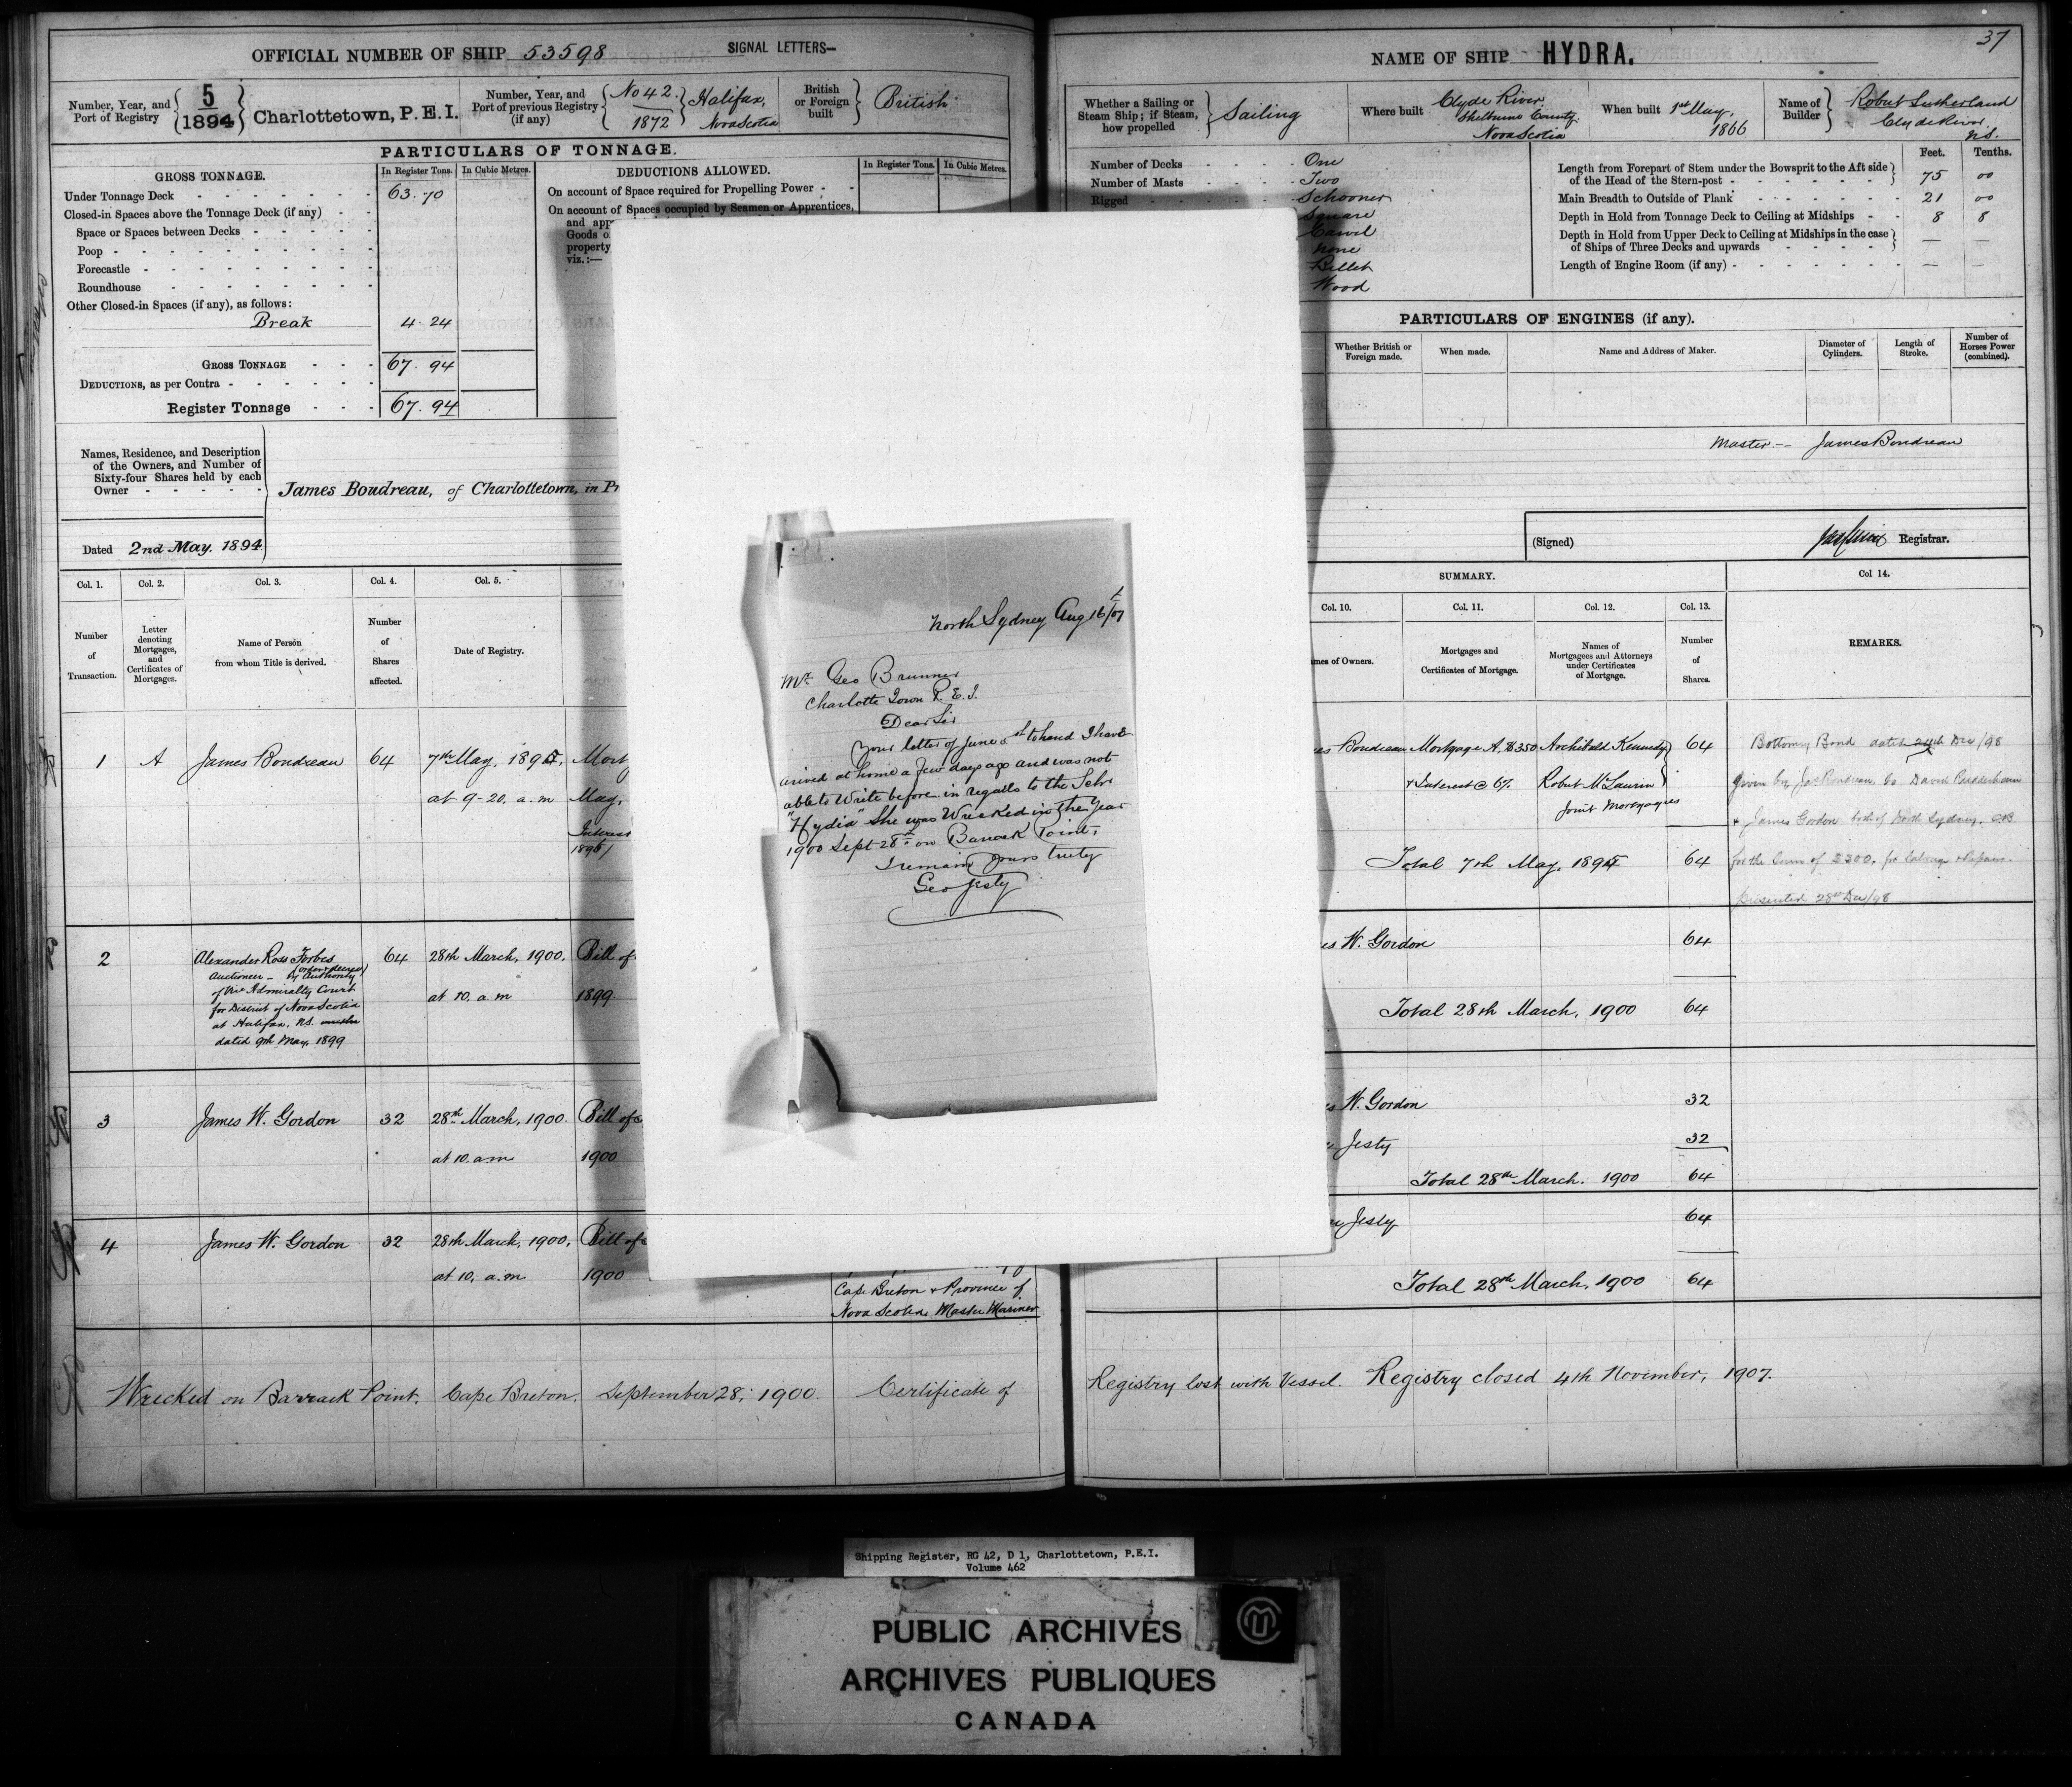 OFFICIAL NUMBER OF SHIP 53598 SIGNAL LETTERS—
Number, Year, and Port of Registry 5 1894 Charlottetown, P.E.I.
Number, Year, and Port of previous Registry (if any) No 42. 1872 Halifax, Nova Scotia
British or Foreign built British
PARTICULARS OF TONNAGE.
GROSS TONNAGE. In Register Tons. In Cubic Metres.
Under Tonnage Deck 63.70
Closed-in Spaces above the Tonnage Deck (if any)
Space or Spaces between Decks
Poop
Forecastle
Roundhouse
Other Closed-in Spaces (if any), as follows:
Break 4.24
GROSS TONNAGE 67.94
DEDUCTIONS, as per Contra
Register Tonnage 67.94
DEDUCTIONS ALLOWED. In Register Tons. In Cubic Metres.
On account of Space required for Propelling Power
On account of Spaces occupied by Seamen or Apprentices,
and app
Goods o
property
viz.:—
Names, Residence, and Description
of the Owners, and Number of
Sixty-four Shares held by each
Owner
James Boudreau, of Charlottetown, in Pr
Dated 2nd May. 1894
Col. 1. Col. 2. Col. 3. Col. 4. Col. 5.
Number of Transaction.
Letter denoting Mortgages, and Certificates of Mortgages.
Name of Person from whom Title is derived.
Number of Shares affected.
Date of Registry.
1 A James Boudreau 64 7th May, 1895, Mort
at 9-20. a.m May,
Interest
1895/
2 Alexander Ross Forbes 64 28th March, 1900. Bill of
Auctioneer - by Authority (order & decree)
of Vice Admiralty Court
for District of Nova Scotia
at Halifax, N.S.
dated 9th May, 1899
at 10. a.m 1899.
3 James W. Gordon 32 28th March, 1900. Bill of
at 10. a.m 1900
4 James W. Gordon 32 28th March, 1900, Bill of
at 10, a.m 1900
Cape Breton & Province of
Nova Scotia Master Mariner
Wrecked on Barrack Point, Cape Breton, September 28, 1900. Certificate of
North Sydney Aug 16/07
Mr Geo Brunner
Charlotte Town P.E.I.
Dear Sir
Your letter of June 5th to hand I have
arived at home a few days ago and was not
able to Write before in regards to the Schr
"Hydia" She was Wrecked in the Year
1900 Sept 28th on Barrack Point,
I remain yours truly
Geo Jesty
37
NAME OF SHIP HYDRA.
Whether a Sailing or Steam Ship; if Steam, how propelled Sailing
Where built Clyde River, Shelburne County, Nova Scotia
When built 1st May, 1866
Name of Builder Robert Sutherland Clyde River, N.S.
Number of Decks One
Number of Masts Two
Rigged Schooner
Square
Carvel
None
Billet
Wood
Feet. Tenths.
Length from Forepart of Stem under the Bowsprit to the Aft side
of the Head of the Stern-post 75 00
Main Breadth to Outside of Plank 21 00
Depth in Hold from Tonnage Deck to Ceiling at Midships 8 8
Depth in Hold from Upper Deck to Ceiling at Midships in the case
of Ships of Three Decks and upwards —
Length of Engine Room (if any) —
PARTICULARS OF ENGINES (if any).
Whether British or Foreign made. When made. Name and Address of Maker. Diameter of Cylinders. Length of Stroke. Number of Horses Power (combined).
Master -- James Boudreau
(Signed) Registrar.
SUMMARY. Col 14.
Col. 10. Col. 11. Col. 12. Col. 13.
mes of Owners.
Mortgages and Certificates of Mortgage.
Names of Mortgagees and Attorneys under Certificates of Mortgage.
Number of Shares.
REMARKS.
es Boudreau Mortgage A, $350 Archibald Kennedy 64
+ Interest @ 6% Robert McLaurin
Joint Mortgagees
Total 7th May, 1895 64
Bottomry Bond dated 24th Dec/98
given by Jas Boudreau to David
& James Gordon both of North Sydney, C.B.
for the Sum of for Salvage & repairs.
presented 28th Dec/98
es W. Gordon 64
Total 28th March, 1900 64
s W. Gordon 32
Jesty 32
Total 28th March. 1900 64
Jesty 64
Total 28th March, 1900 64
Registry lost with Vessel. Registry closed 4th November, 1907.
Shipping Register, RG 42, D 1, Charlottetown, P.E.I.
Volume 462
PUBLIC ARCHIVES
ARCHIVES PUBLIQUES
CANADA